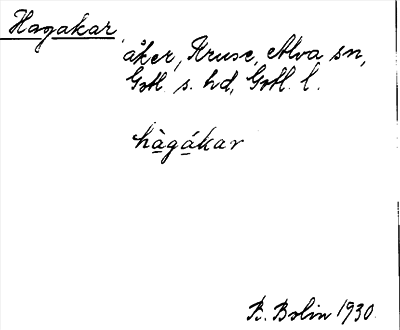 Hagakar,
åker, Kruse, Alva sn,
Gotl s. hd, Gotl. l.
hàgákar
P. Bolin 1930.